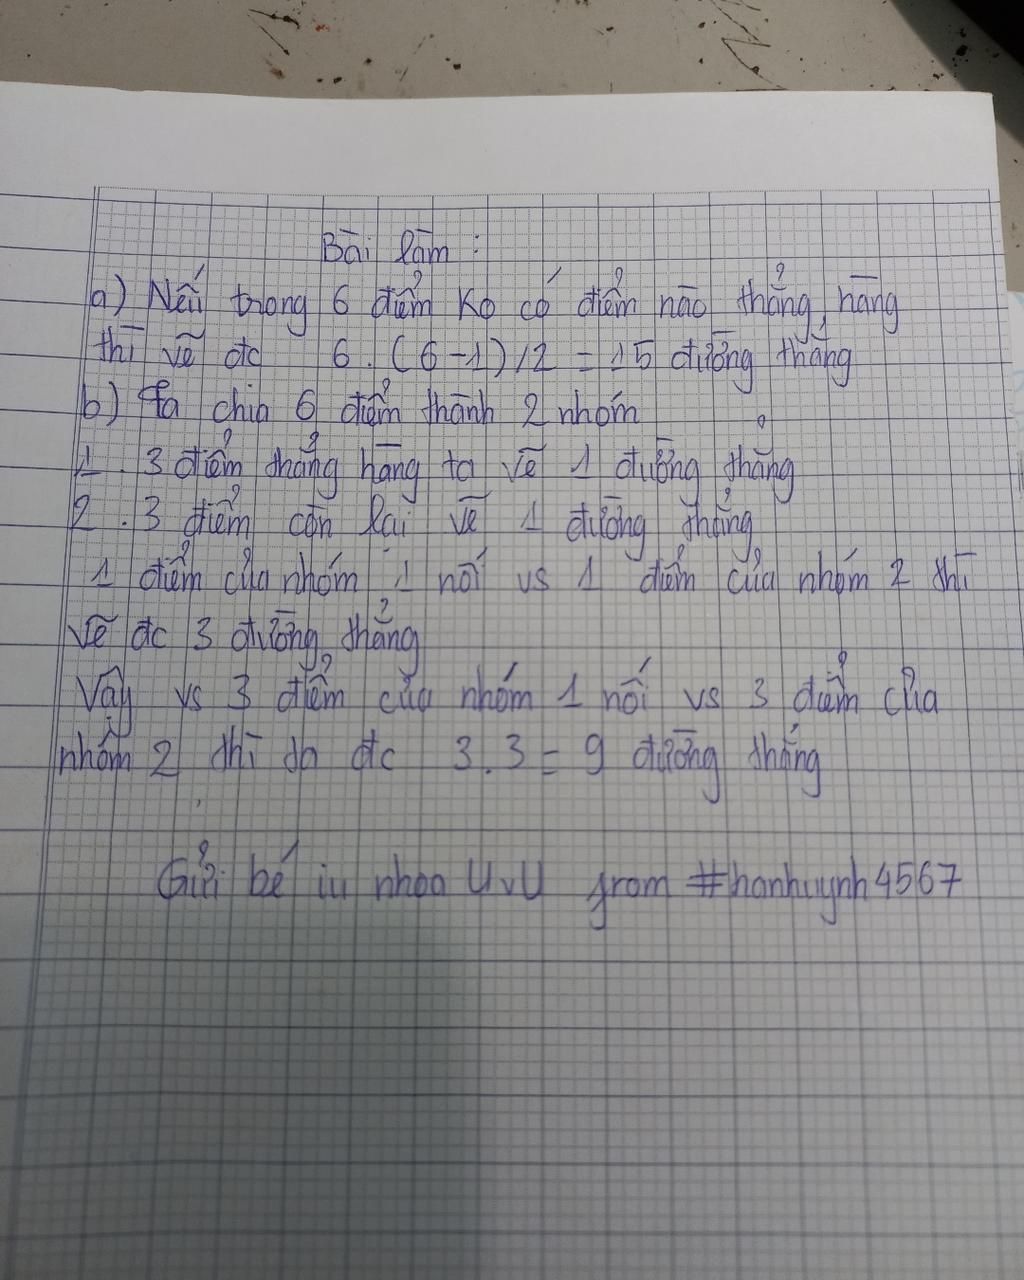 Bài làm :
a) Nếu trong 6 điểm ko có điểm nào thẳng hàng
thì vẽ đc 6 . (6-1)/2 = 15 đường thẳng
b) Ta chia 6 điểm thành 2 nhóm
1. 3 điểm thẳng hàng ta vẽ 1 đường thẳng
2. 3 điểm còn lại vẽ 1 đường thẳng
1 điểm của nhóm 1 nối vs 1 điểm của nhóm 2 thì
vẽ đc 3 đường thẳng
Vậy vs 3 điểm của nhóm 1 nối vs 3 điểm của
nhóm 2 thì ta đc 3.3 = 9 đường thẳng
Gửi bé iu nhoa UvU from #hanhuynh4567